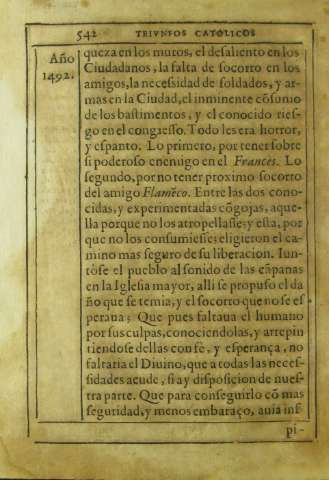 542 TRIVNFOS CATOLICOS
Año
1492.
queza en los muros, el desaliento en los
Ciudadanos, la falta de socorro en los
amigos, la necessidad de soldados, y ar-
mas en la Ciudad, el inminente cõsumo
de los bastimentos, y el conocido ries-
go en el congresso. Todo les era horror,
y espanto. Lo primero, por tener sobre
si poderoso enemigo en el Frances. Lo
segundo, por no tener proximo socorro
del amigo Flamẽco. Entre las dos cono-
cidas, y experimentadas cõgojas, aque-
lla porque no los atropellasse, y esta, por
que no los consumiesse; eligieron el ca-
mino mas seguro de su liberacion. Iun-
tòse el pueblo al sonido de las cãpanas
en la Iglesia mayor, alli se propuso el da
ño que se temia, y el socorro que no se es
peraua; Que pues faltaua el humano
por sus culpas, conociendolas, y arrepin
tiendose dellas con fè, y esperança, no
faltaria el Diuino, que a todas las neces-
sidades acude, si ay disposicion de nues-
tra parte. Que para conseguirlo cõ mas
seguridad, y menos embaraço, auia ins
pi-